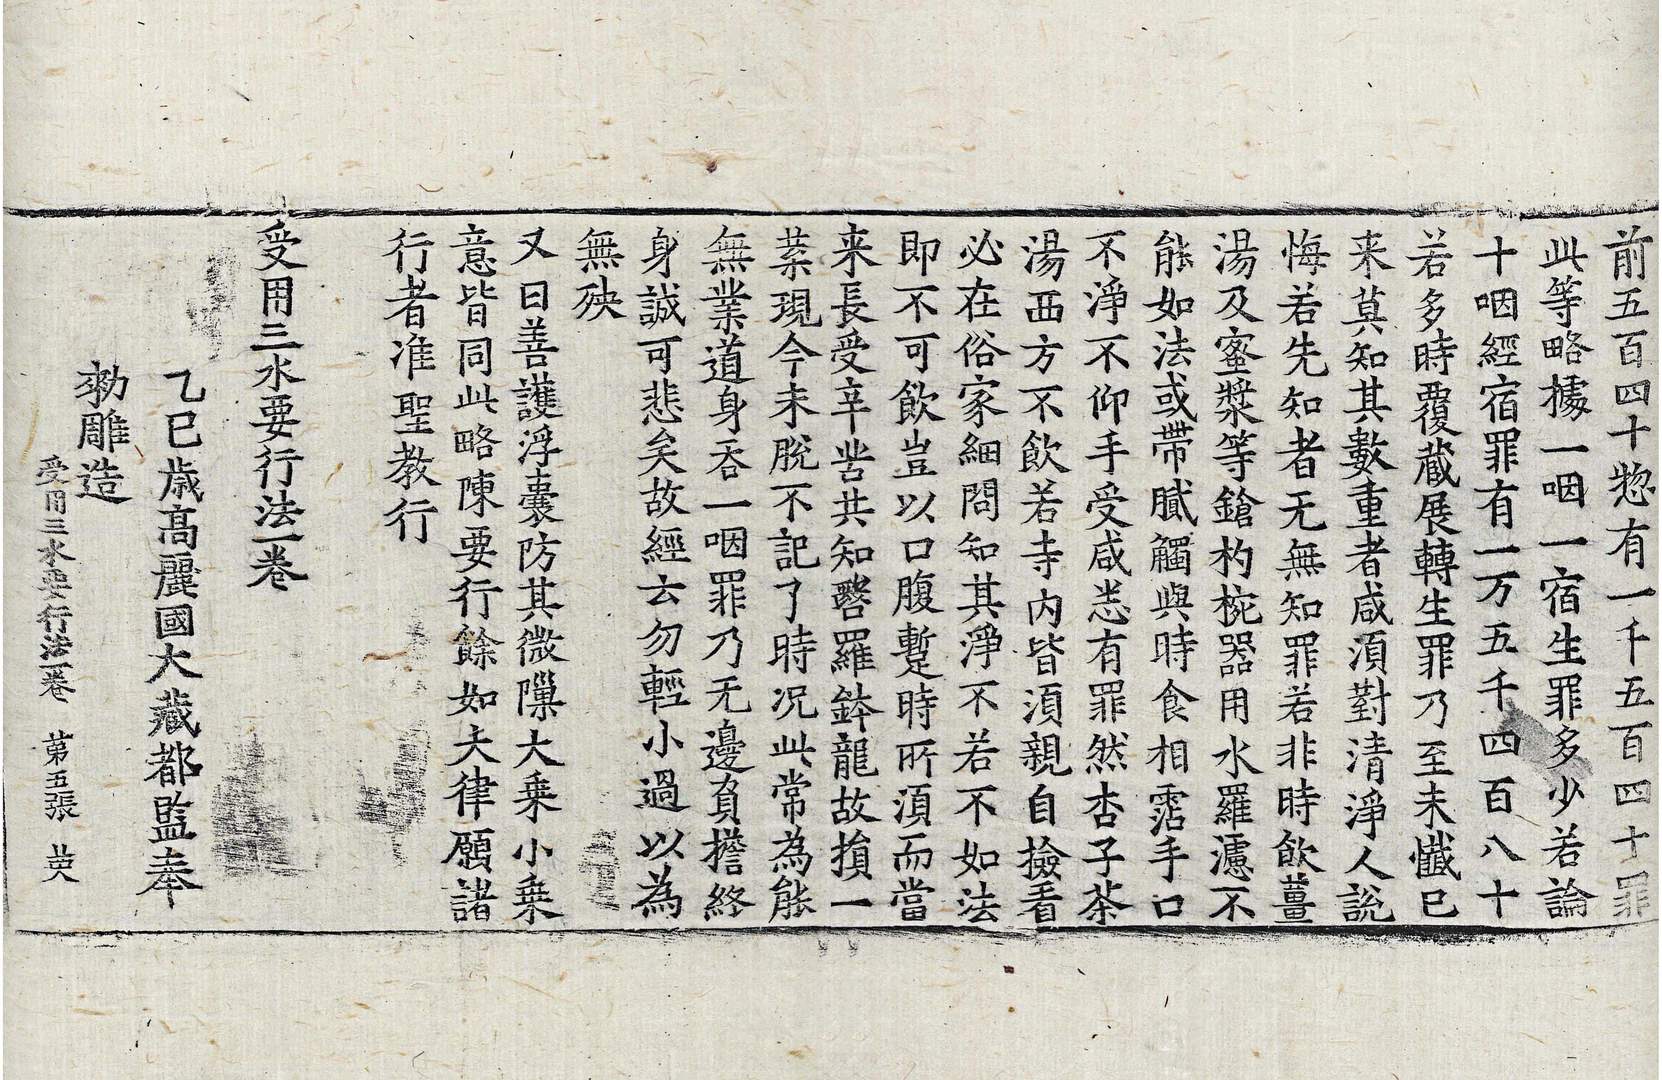 前五百四十惣有一千五百四十罪
此等略據一咽一宿生罪多少若論
十咽經宿罪有一万五千四百八十
若多時覆蔵展轉生罪乃至未懺已
来莫知其數重者咸湏對清淨人說
悔若先知者无無知罪若非時飲薑
湯及蜜漿等鎗杓椀器用水羅濾不
能如法或帶膩觸與時食相霑手口
不淨不仰手受咸悉有罪然杏子茶
湯西方不飲若寺内皆湏親自撿看
必在俗家細問知其淨不若不如法
即不可飲豈以口腹蹔時所湏而當
来長受辛苦共知翳羅鉢龍故損一
葉現今未脫不記了時况此常為能
無業道身吞一咽罪乃无邊負擔終
身誠可悲矣故經云勿輕小過以為
無殃
又曰善護浮囊防其微隟大乗小乗
意皆同此略陳要行餘如大律願諸
行者准聖教行
受用三水要行法一卷
乙巳歳高麗國大藏都監奉
勑雕造
受用三水要行法一卷 第五張 英